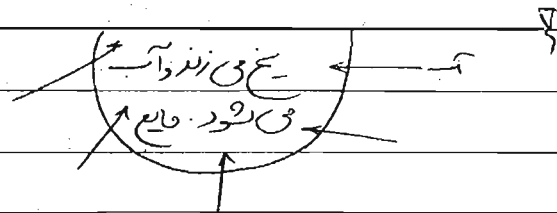 آب
یخ می زند و آب
می شود. مایع